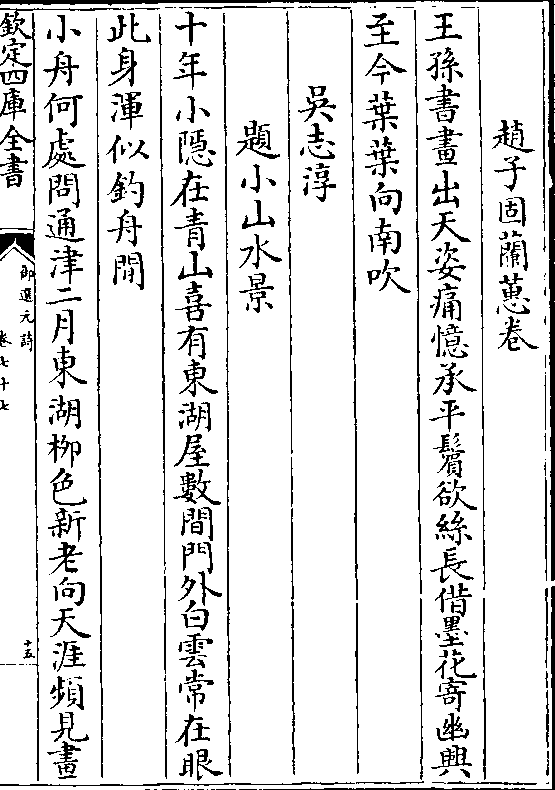 趙子固蘭蕙卷
王孫書畫出天姿痛憶承平鬢欲絲長借墨花寄幽興
至今葉葉向南吹
吳志淳
題小山水景
十年小隱在青山喜有東湖屋數間門外白雲常在眼
此身渾似釣舟閒
小舟何處問通津二月東湖柳色新老向天涯頻見畫
欽定四庫全書
御選元詩
卷七十七
十五